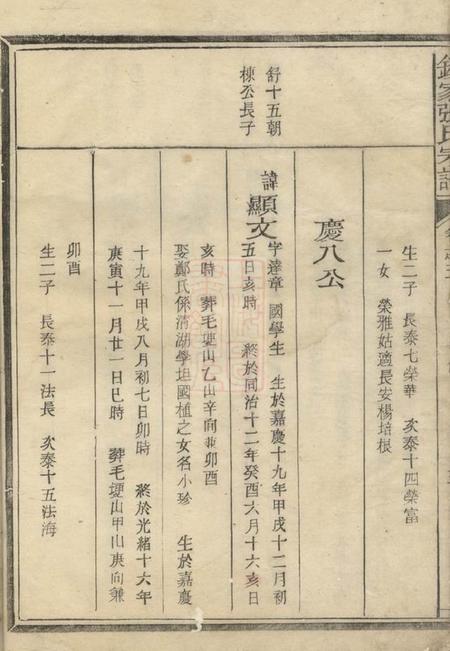 張氏宗譜
生二子 長泰七榮華 次泰十四榮富
一女 榮雅姑適長安楊培根
慶八公
舒十五朝
棟公長子
諱顯文
字達章 國學生 生於嘉慶十九年甲戌十二月初
五日亥時 終於同治十二年癸酉六月十六亥日
亥時 葬毛堽山乙山辛向兼卯酉
娶鄭氏係清湖學坦國植之女名小珍 生於嘉慶
十九年甲戌八月初七日卯時 終於光緒十六年
庚寅十一月廿一日巳時 葬毛堽山甲山庚向兼
卯酉
生二子 長泰十一法長 次泰十五法海